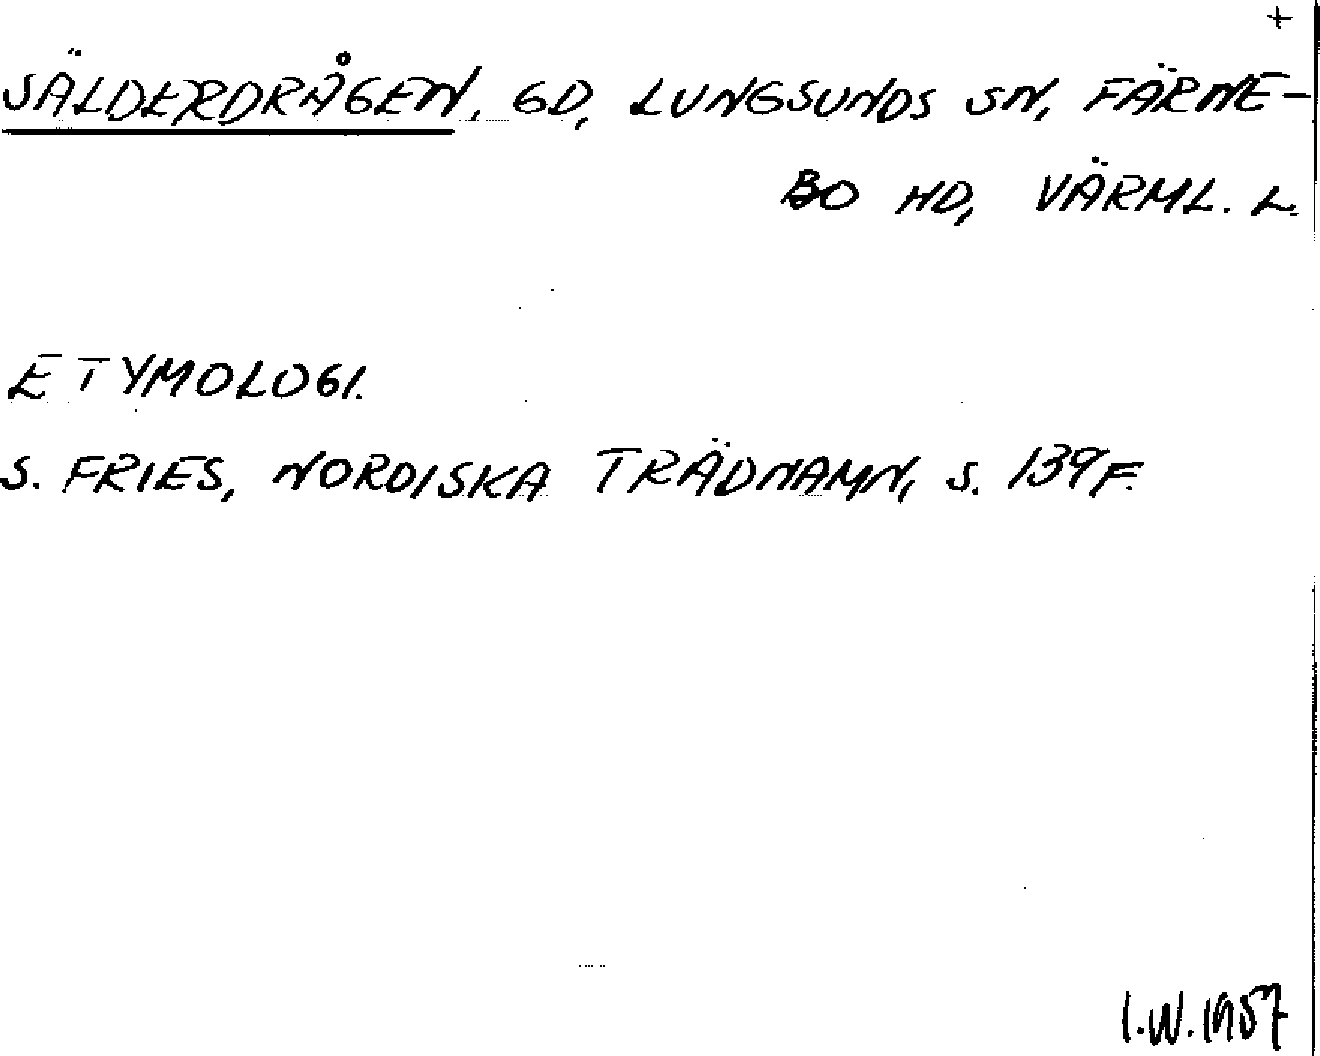 +
SÄLDERDRÅGEN, GD, LUNGSUNDS SN, FÄRNE-
BO HD, VÄRML. L.
ETYMOLOGI.
S. FRIES, NORDISKA TRÄDNAMN, S. 139 F.
I.W. 1957